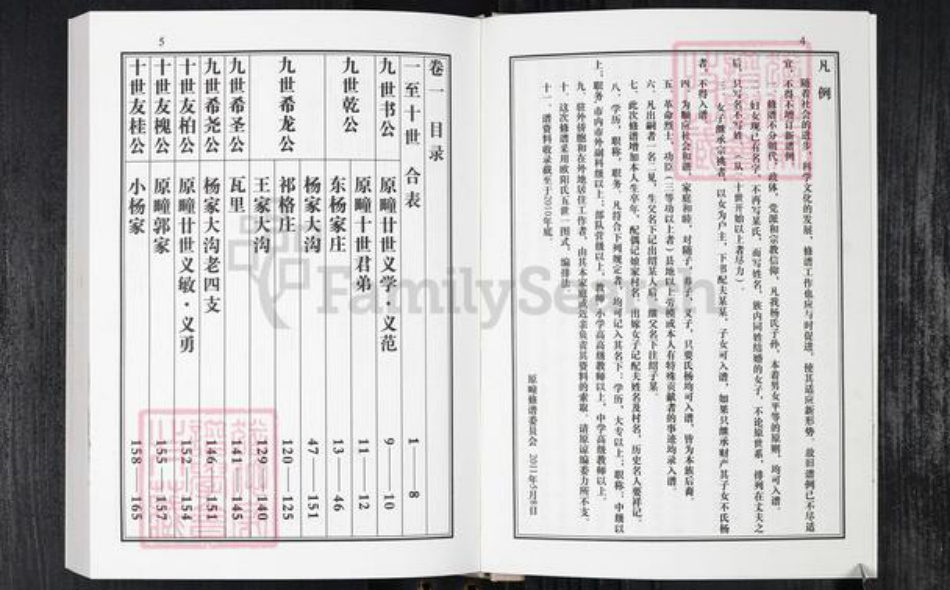 4
凡例
随着社会的进步,科学文化的发展,修谱工作也应与时俱进,使其适应新形势,故旧谱例已不尽适
宜,不得不增订新谱例。
一、修谱不分朝代、政体、党派和宗教信仰,凡我杨氏子孙,本着男女平等的原则,均可入谱。
二、妇女现已有名字,不再写某氏,而写姓名。族内同姓结婚的女子,不论原世系,排列在丈夫之
后,只写名不写姓(从二十世开始以上者尽力)。
三、女子继承宗祧者,以女为户主,下书配夫某某,子女可入谱,如果只继承财产其子女不氏杨
者,不得入谱。
四、为顺应社会和谐,家庭和睦,对随子、养子、义子,只要氏杨均可入谱,皆为本族后裔。
五、革命烈士、功臣(三等功以上者)县地以上劳模或本人有特殊贡献者的事迹均录入谱。
六、凡出嗣者一名二见,生父名下记出绍某人后,继父名下注绍子某。
七、此次修谱增加本人生卒年,配偶记娘家村名,出嫁女子记配夫姓名及村名,历史名人要祥记。
八、学历、职称、职务,凡符合下列规定者,均可记入其名下:学历,大专以上;职称,中级以
上;职务,市内市外副科级以上;部队营级以上,教师,小学高级教师以上,中学高级教师以上。
九、驻外侨胞和在外地居住工作者,由其本家庭或近亲负责其资料的索取,请原谅编委力所不支。
十、这次修谱采用欧阳氏五世一图式,编排法。
十一、谱资料收录截至于2010年底。
原疃修谱委员会 2011年5月8日
5
卷一 目录
一至十世 合表 1 8
九世书公 原疃廿世义学·义范 9——10
九世乾公 原疃十世君弟 11——12
东杨家庄 13——46
九世希龙公 杨家大沟 47——151
祁格庄 120——125
王家大沟 129——140
九世希圣公 瓦里 141——145
九世希尧公 杨家大沟老四支 146——151
十世友柏公 原疃廿世义敏·义勇 152——154
十世友槐公 原疃郭家 155——157
十世友桂公 小杨家 158——165
FamilySearch